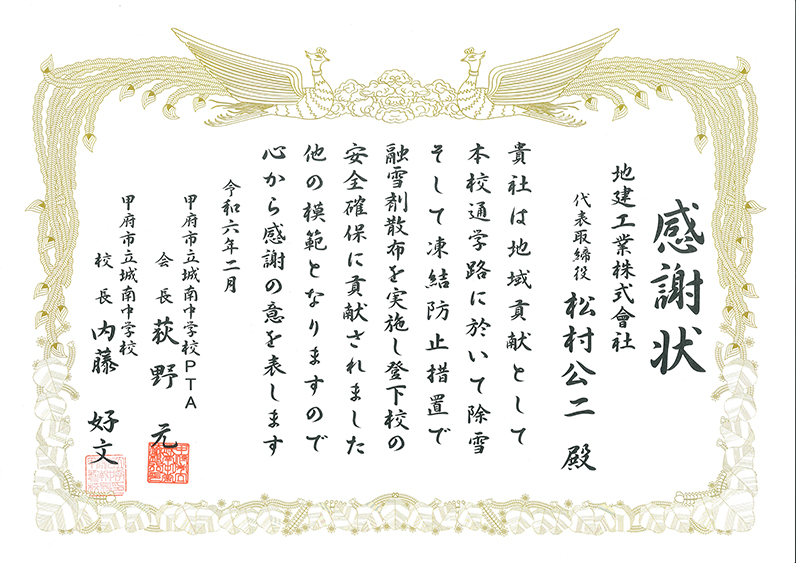 感謝状
地建工業株式會社
代表取締役 松村公二 殿
貴社は地域貢献として
本校通学路に於いて除雪
そして凍結防止措置で
融雪剤散布を実施し登下校の
安全確保に貢献されました
他の模範となりますので
心から感謝の意を表します
令和六年二月
甲府市立城南中学校PTA
会長 萩野 元
甲府市立城南中学校
校長 内藤 好文